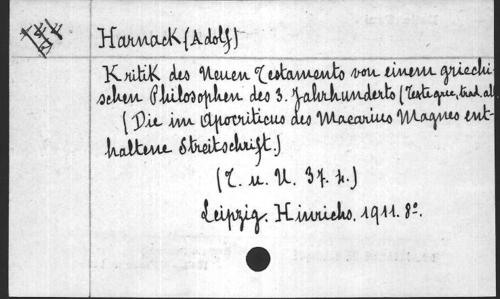 Harnack (Adolf)
Kritik des Neuen Testaments von einem griechi-
schen Philosophen des 3. Jahrhunderts (Texte grec, trad. all
(Die im Apocriticus des Macarius Magnes ent-
haltene Streitschrift.)
(T. u. U. 37. 4.)
Leipzig. Hinrichs. 1911. 8º.